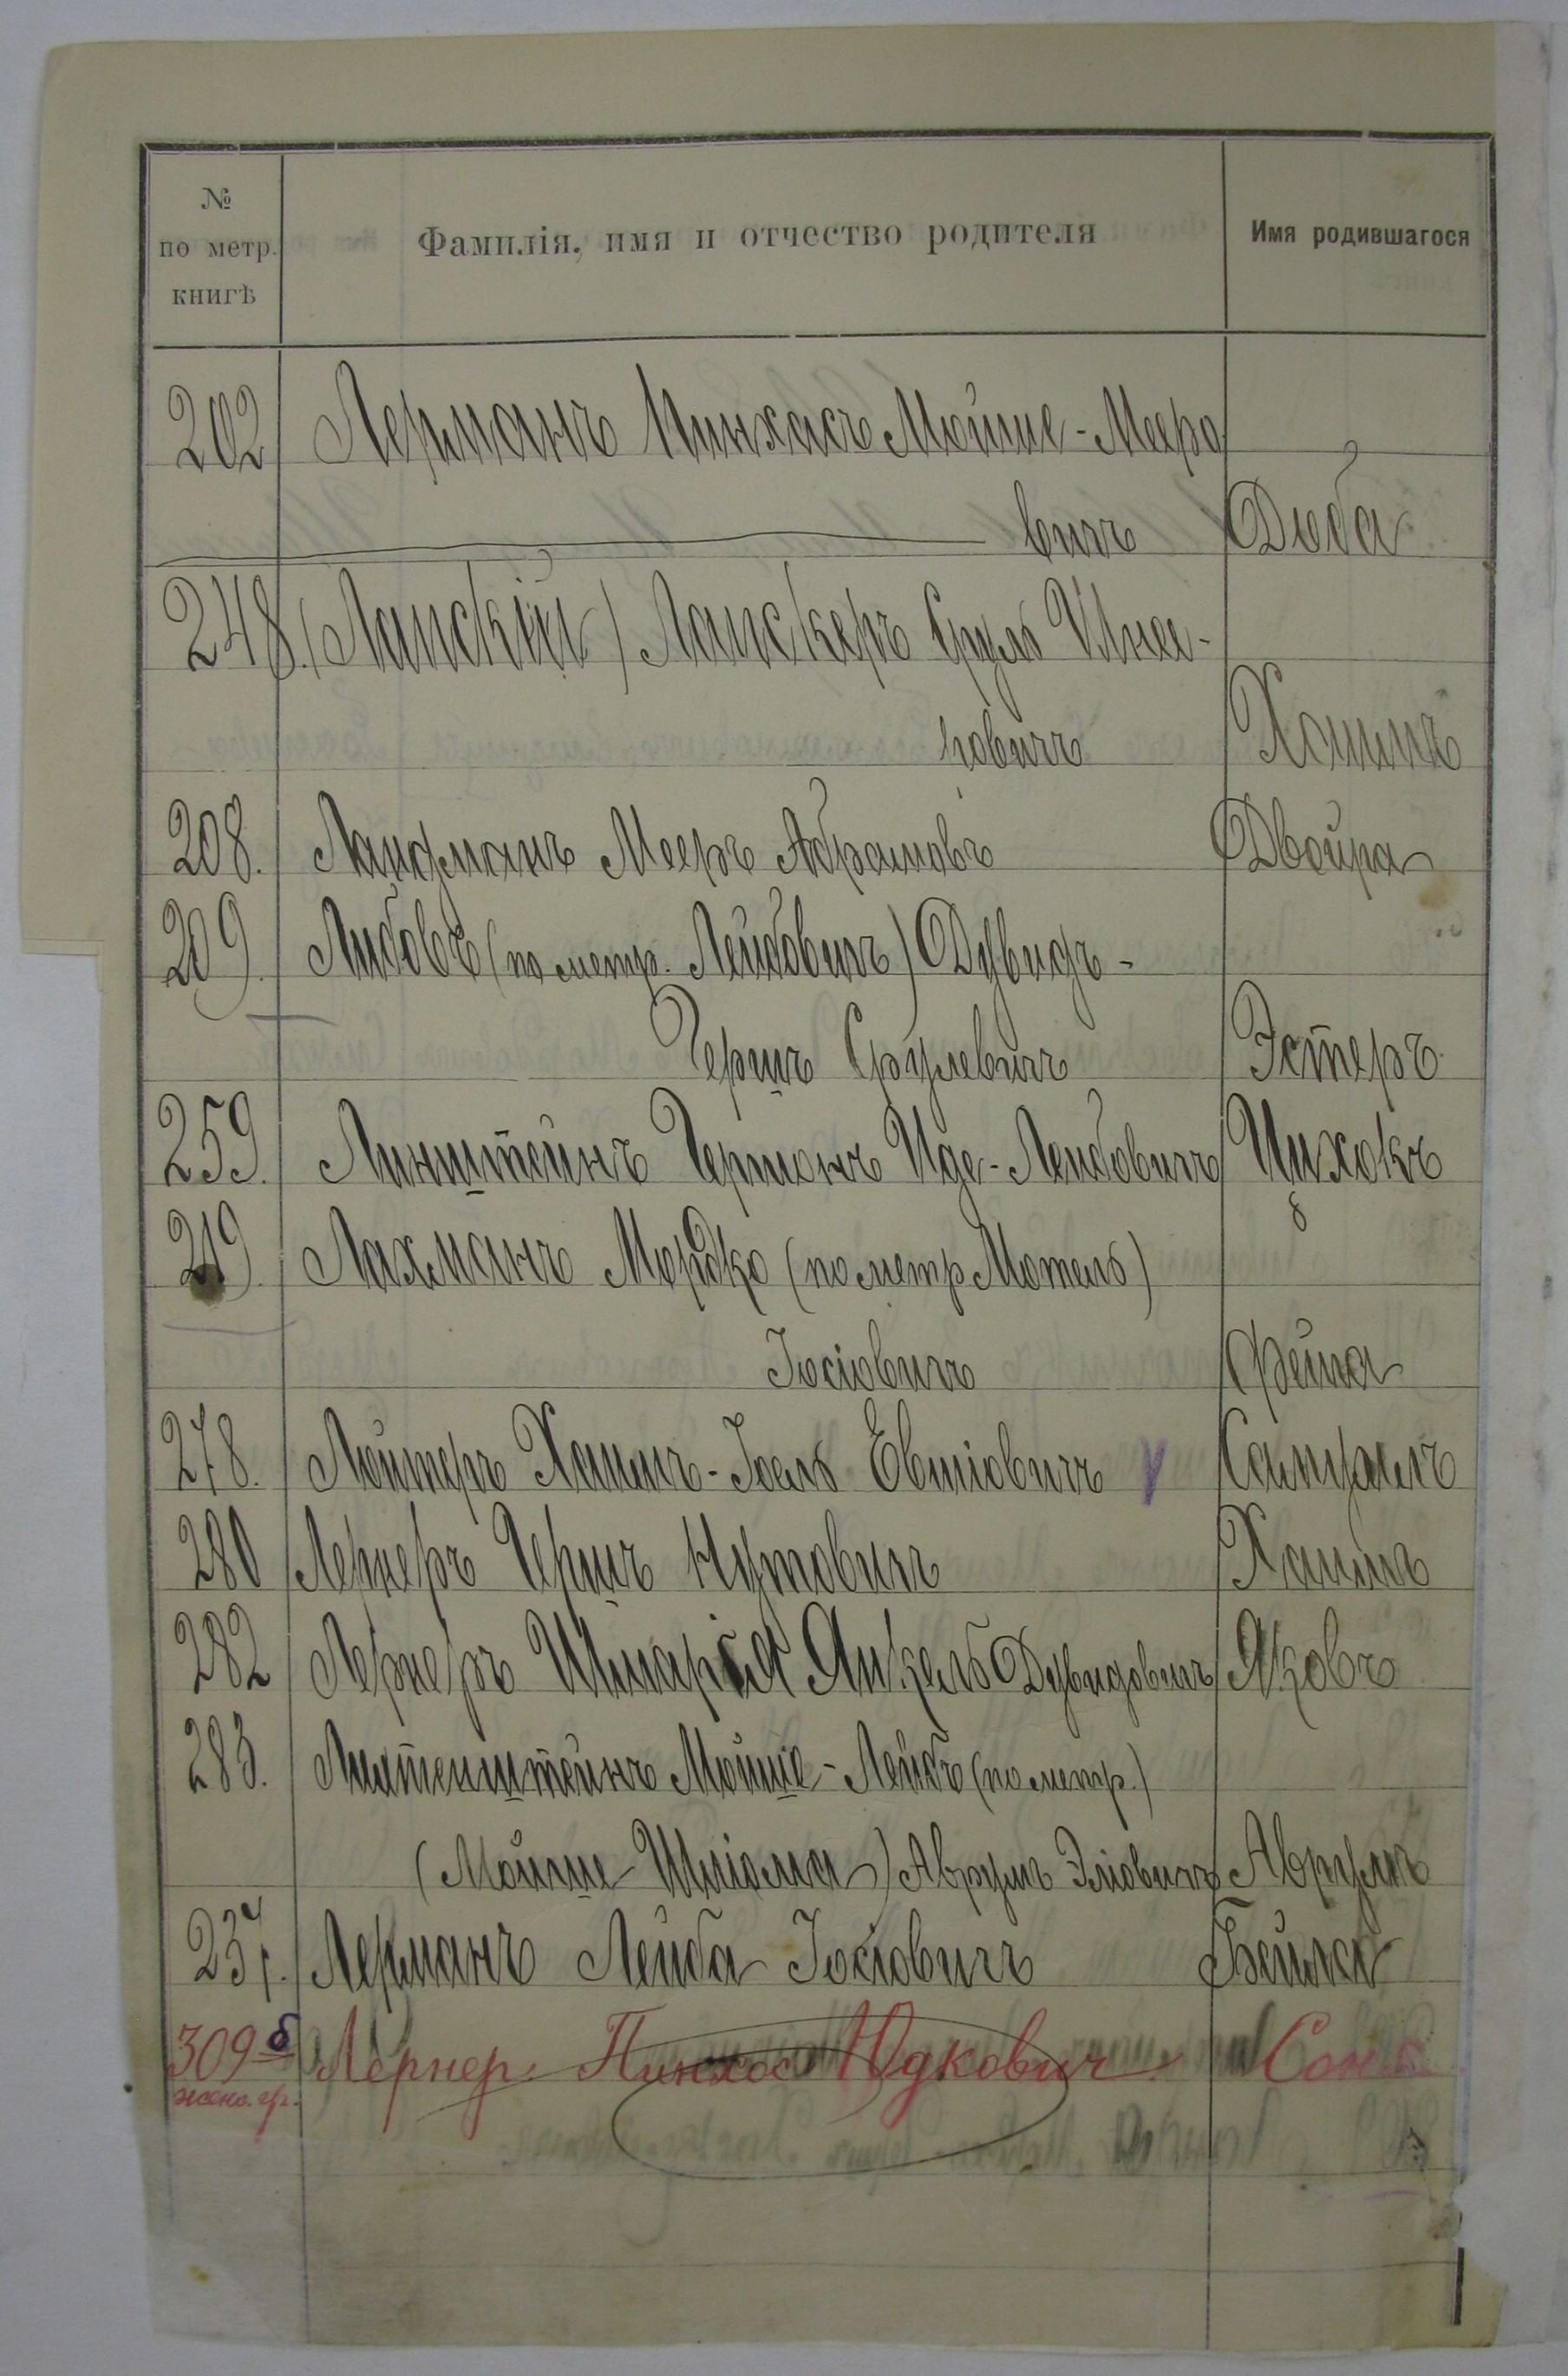 № по метр. книгѣ	Фамилія, имя и отчество родителя	Имя родившагося
202	Лерманъ Пинхасъ Мойше-Мееро
вичъ	Доба
248.	(Ланскій) Ланскеръ Сруль Шнее-
ровичъ	Хаимъ
208.	Ландманъ Мееръ Абрамовъ	Двойра
209.	Либовъ (по метр. Лейбовичъ) Дувидъ-
Гершъ Срулевичъ	Эстеръ
259.	Линштейнъ Гершонъ Иде-Лейбовичъ	Ицхокъ
219.	Лахманъ Мордко (по метр Мотель)
Іосіовичъ	Фейга
278.	Лойтеръ Хаимъ-Іоель Евшіовичъ
280	Лернеръ Гершъ Нутовичъ	Хаимъ
282	Лернеръ Шмарія Янкель Дувидовичъ	Яковъ
283.	Лихтенштейнъ Мойше-Лейбъ (по метр.)
(Мойше-Шліома) Аврумъ Эліовичъ	Аврумъ
237.	Лерманъ Лейба Іосіовичъ	Бейла
309 б	Лернер. Пинхос Юдкович.	Соня
женс. гр.